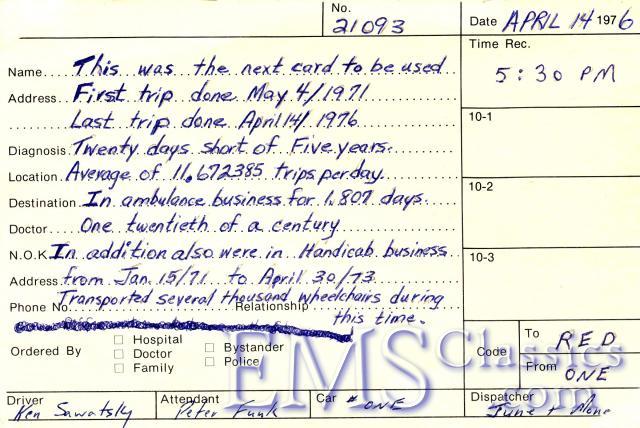 No. 21093
Date APRIL 14 1976
Time Rec.
5:30 PM
Name This was the next card to be used
Address First trip done May 4/1971
Last trip done April 14/ 1976
Diagnosis Twenty days short of Five years.
Location Average of 11.672385 trips per day
Destination In ambulance business for 1,807 days.
Doctor One twentieth of a century
N.O.K. In addition also were in Handicab business
Address from Jan. 15/71 to April 30/73
Phone No. Relationship
Transported several thousand wheelchairs during
this time.
10-1
10-2
10-3
Ordered By
Hospital
Doctor
Family
Bystander
Police
Code
To RED
From ONE
Driver Ken Sawatsky
Attendant Peter Funk
Car # ONE
Dispatcher June +
EMS Classics
.com